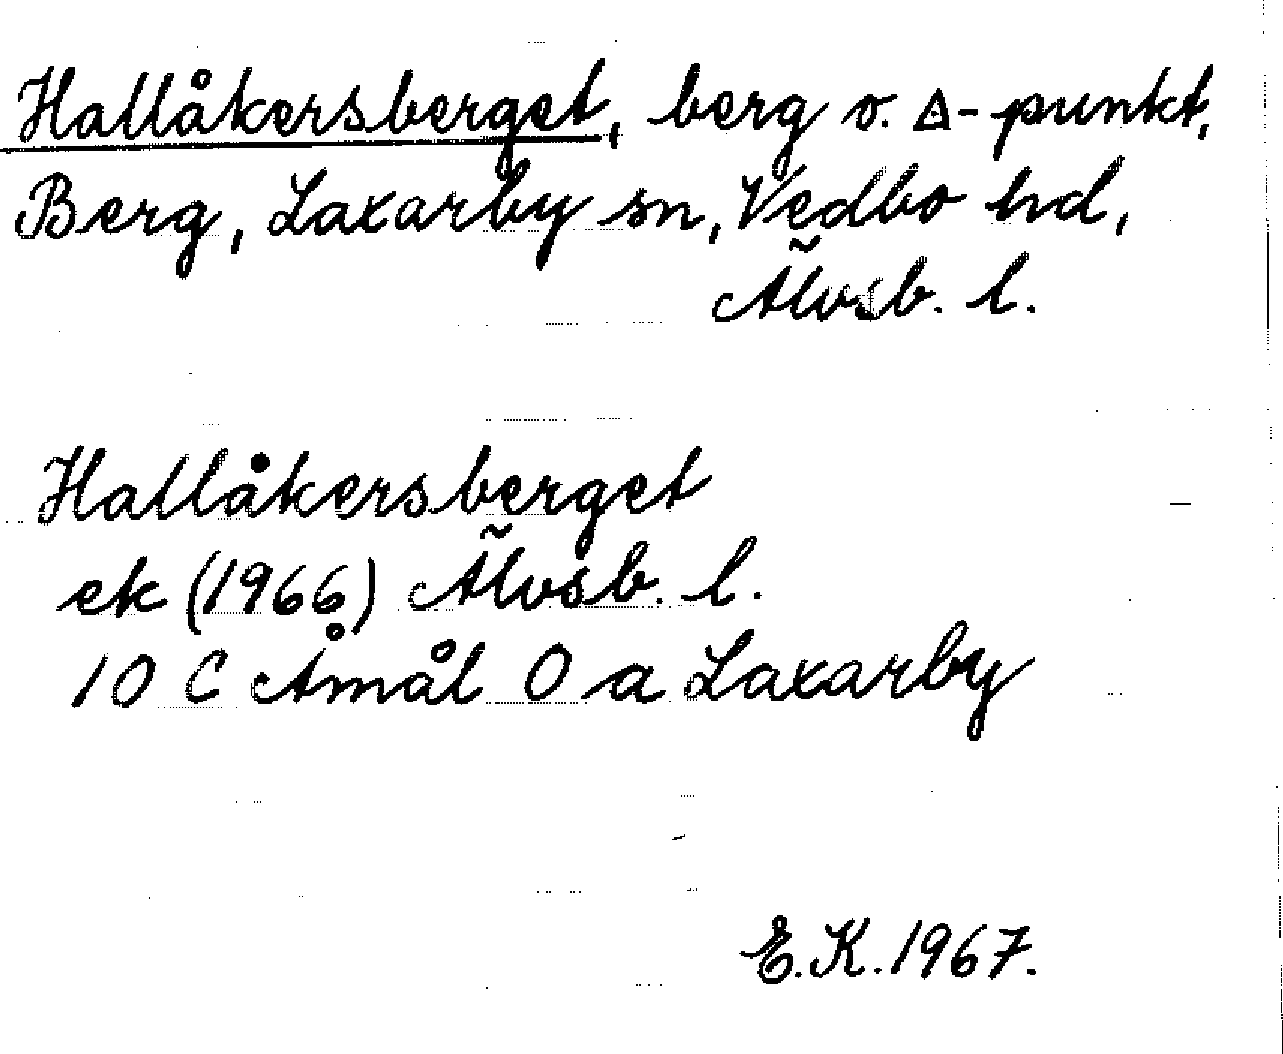 Hallåkersberget, berg o. Δ-punkt,
Berg, Laxarby sn, Vedbo hd,
Älvsb. l.
Hallåkersberget
ek (1966) Älvsb. l.
10 C Åmål O a Laxarby
E.K. 1967.